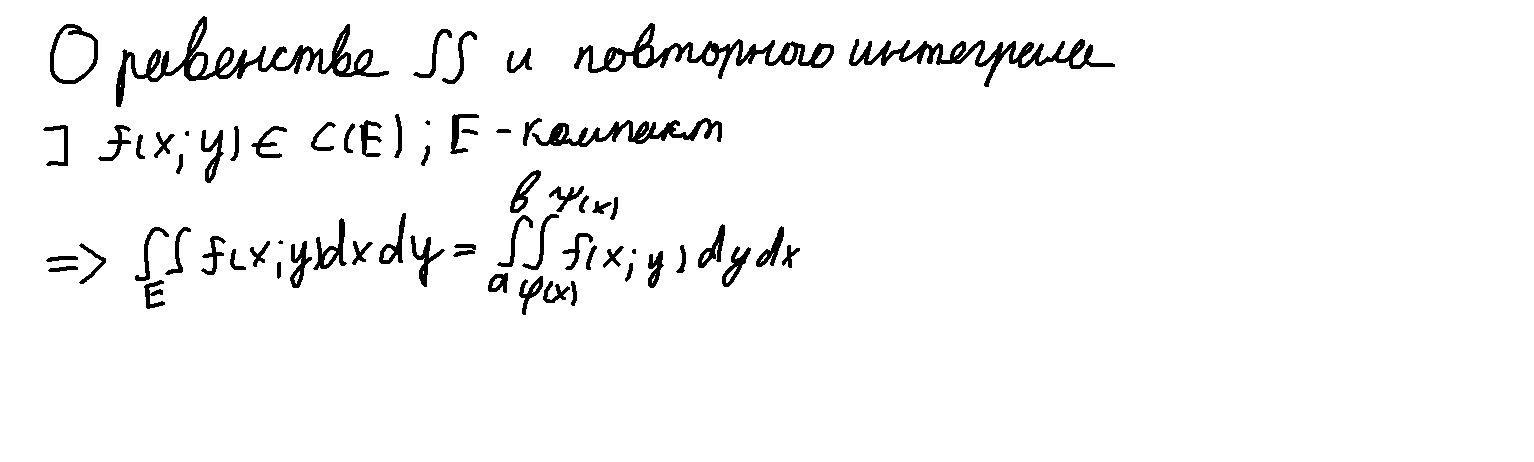 О равенстве ∬ и повторного интеграла
] f(x;y) ∈ C(E); E - компакт
=> ∬_E f(x;y)dxdy = ∫_a^в ∫_φ(x)^ψ(x) f(x;y)dydx